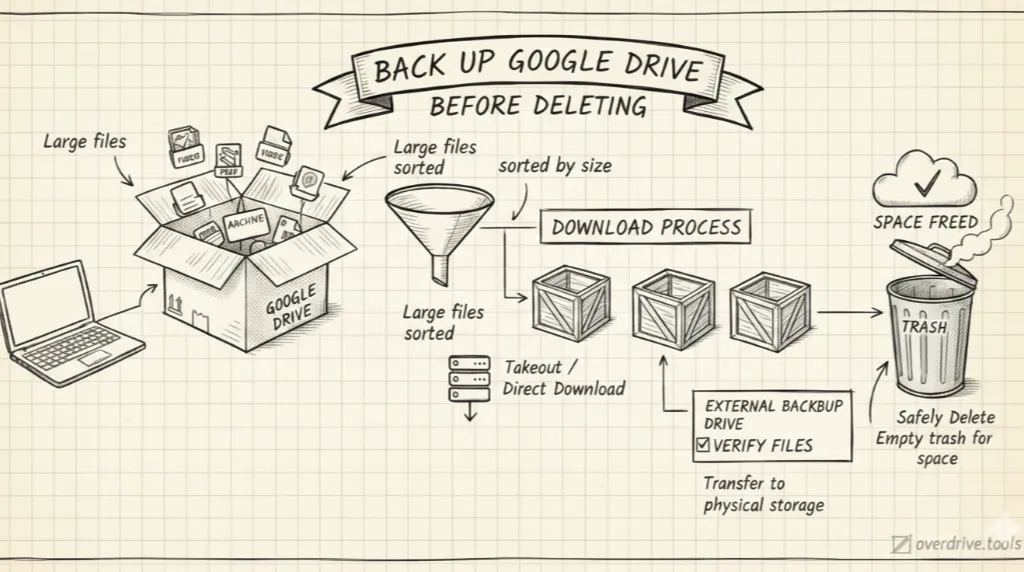 BACK UP GOOGLE DRIVE
BEFORE DELETING
Large files
ARCHNE
GOOGLE
DRIVE
Large files
sorted
sorted by size
DOWNLOAD PROCESS
Large files
sorted
Takeout /
Direct Download
EXTERNAL BACKBUP
DRIVE
VERIFY FILES
Transfer to
physical storage
SPACE FREED
TRASH
Safely Delete
Empty trash for
space
overdrive.tools